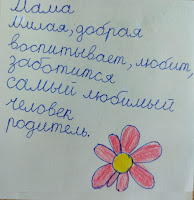 Мама
Милая, добрая
воспитывает, любит,
заботится
самый любимый
человек
родитель.